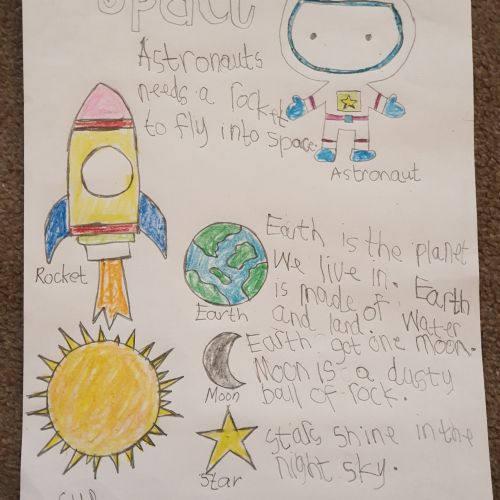 Space
Astronauts
needs a rockit
to fly into space.
Astronaut
Rocket
Earth is the planet
we live in. Earth
is made of water
and land.
Earth
Earth got one moon.
Moon is a dusty
ball of rock.
Moon
stars shine in the
night sky.
Star
sun